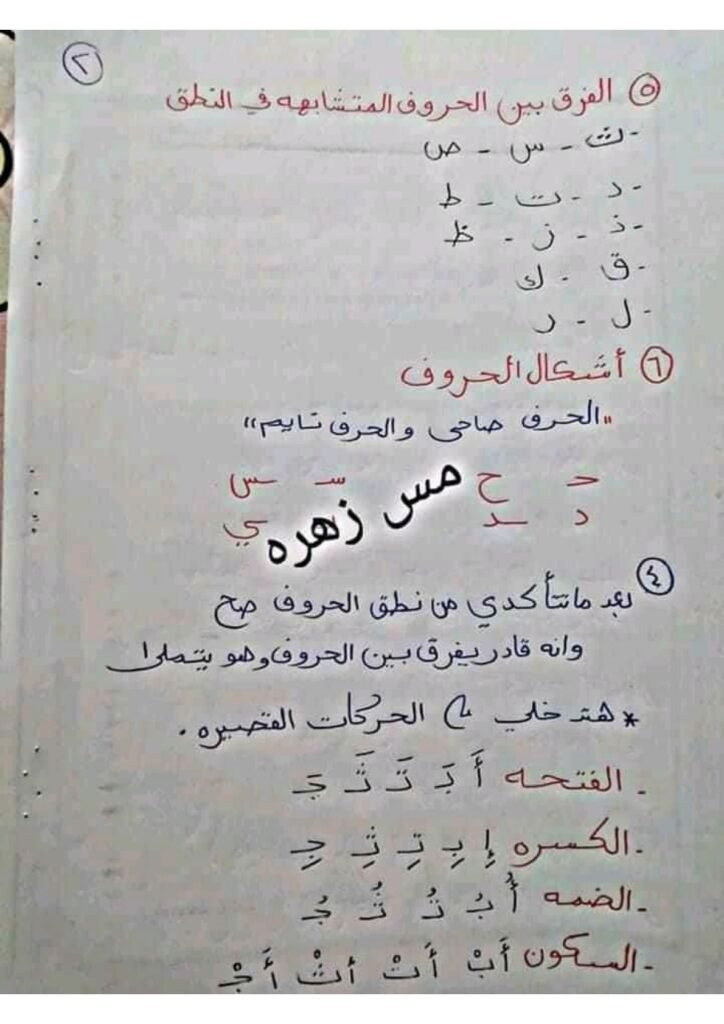 ٢
٥ الفرق بين الحروف المتشابهه في النطق
- ث - س - ص
- د - ت - ط
- ذ - ز - ظ
- ق - ك
- ل - ر
٦ أشكال الحروف
"الحرف صاحى والحرف نايم"
حـ ح سـ س
د ـد ي
مس زهره
٤ بعد ماتتأكدي من نطق الحروف صح
وانه قادر يفرق بين الحروف وهو بيتملا
* هتدخلي ع الحركات القصيره .
- الفتحه أَ بَـ تَـ ثَـ جَـ
- الكسره إِ بِـ تِـ ثِـ جِـ
- الضمه أُ بُـ تُـ ثُـ جُـ
- السكون أَبْ أَتْ أَثْ أَجْ